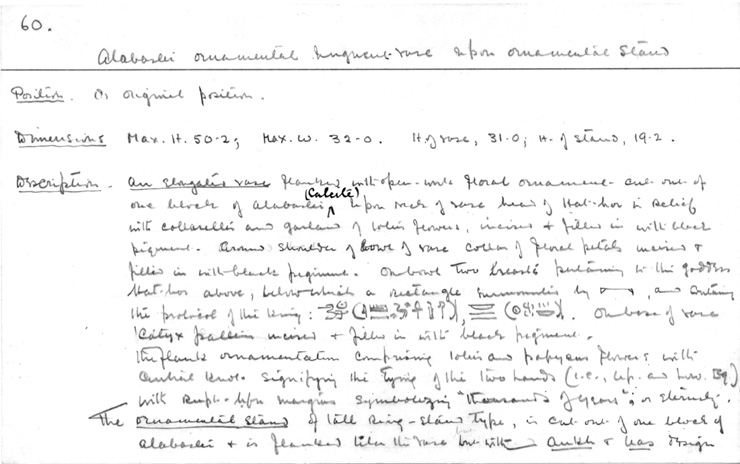 60.
Alabaster ornamental unguent-vase upon ornamental stand
Position. In original position.
Dimensions Max. H. 50.2; Max. W. 32.0. H. of vase, 31.0; H. of stand, 19.2.
Description. An elongated vase flanked with open-work floral ornament - cut out of
(calcite)
one block of alabaster ^ Upon neck of vase head of Hat-hor in relief
with collarette and garland of lotus flowers, incised & filled in with black
pigment. Around shoulder of bowl of vase collar of floral petals incised &
filled in with black pigment. On bowl two breasts pertaining to the goddess
Hat-hor above, below which a rectangle surmounted by , and containing
the protocol of the King: . On base of vase
Calyx incised & filled in with black pigment.
The flank ornamentation comprising lotus and papyrus flowers with
central knot signifying the tying of the two lands (i.e., Up. and Low. Eg.)
with margins symbolizing "thousands of years", or eternity.
The ornamental stand of tall ring-stand type, is cut out of one block of
alabaster & is flanked like the vase but with ankh & uas design